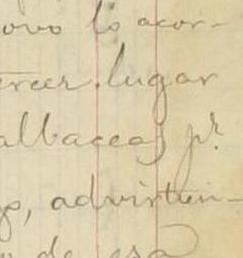 ovo lo acor-
ercer lugar
albaceas pr.
go, advirtien-
de esa